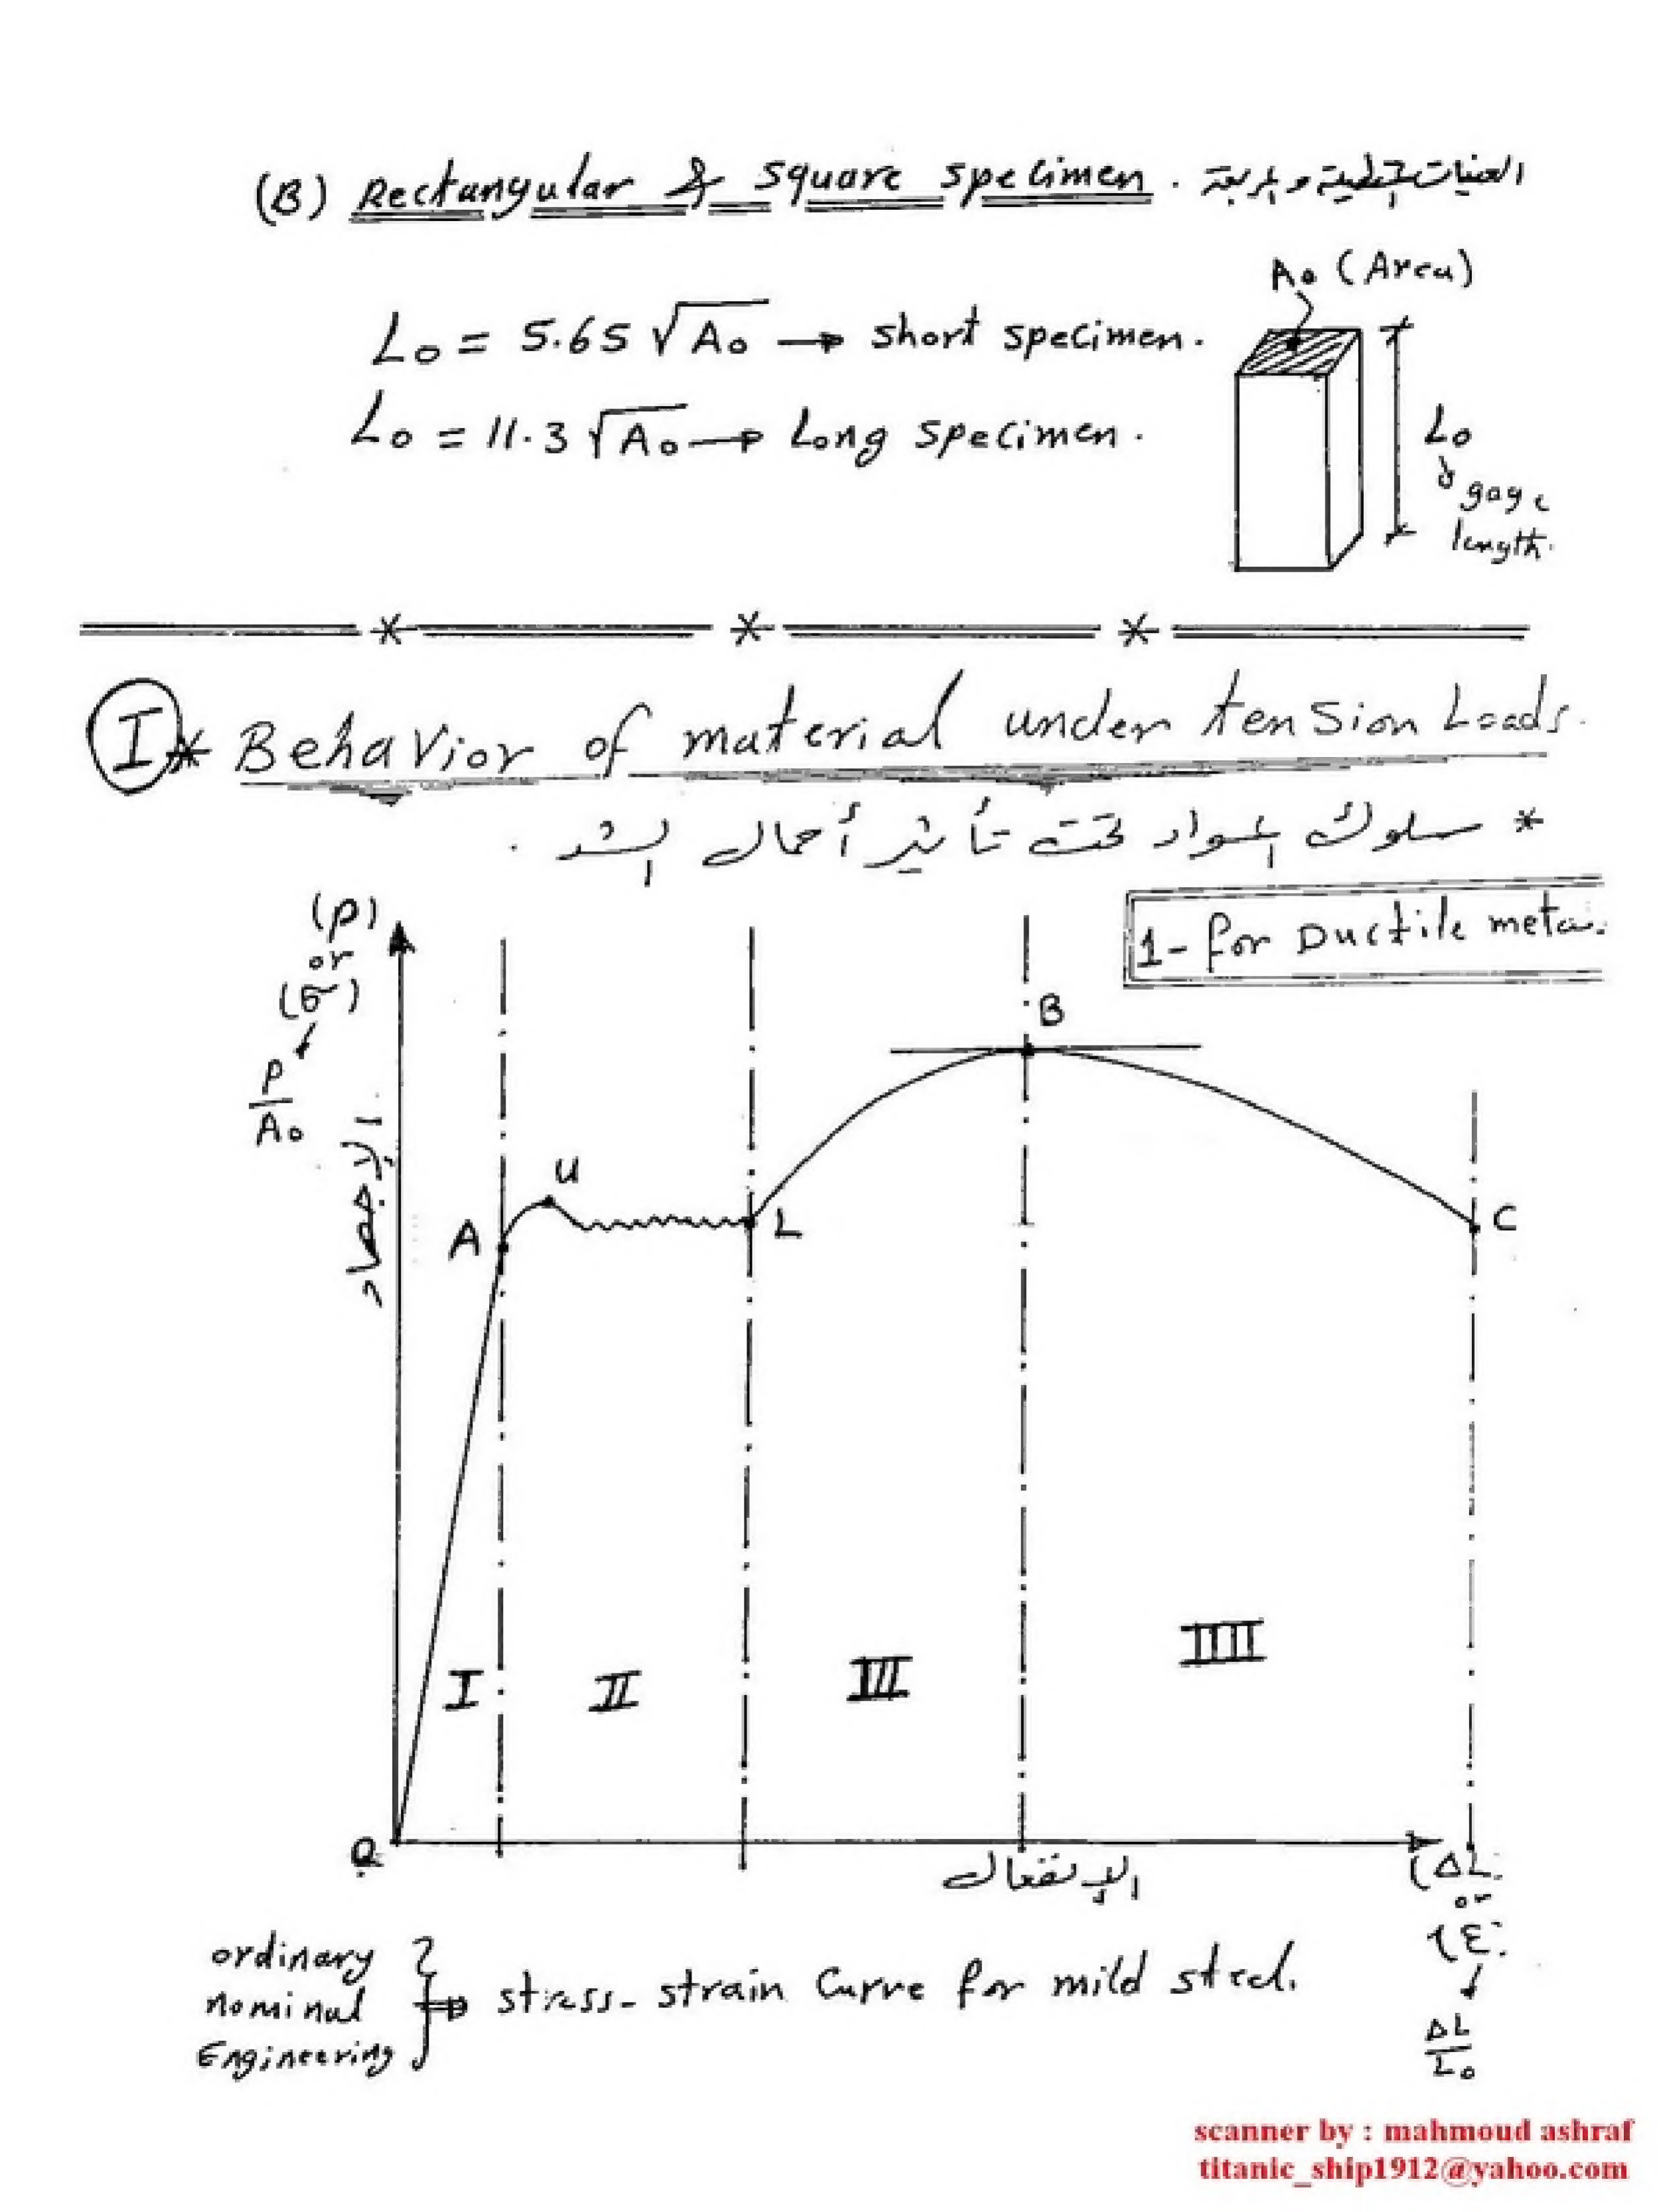 (B) Rectangular & square specimen. العينات المستطيلة و المربعة
A₀ (Area)
L₀ = 5.65 √A₀ → short specimen.
L₀ = 11.3 √A₀ → Long specimen.
L₀
gage
length.
I * Behavior of material under tension Loads.
* سلوك المواد تحت تأثير أحمال الشد.
1- for Ductile meta.
(P)
or
(σ)
P
A₀
الإجهاد
B
U
A
L
C
I
II
III
IIII
O
الإنفعال
(ΔL
or
(ε
ΔL
L₀
ordinary
nominal
Engineering
stress-strain Curve for mild steel.
scanner by : mahmoud ashraf
titanic_ship1912@yahoo.com